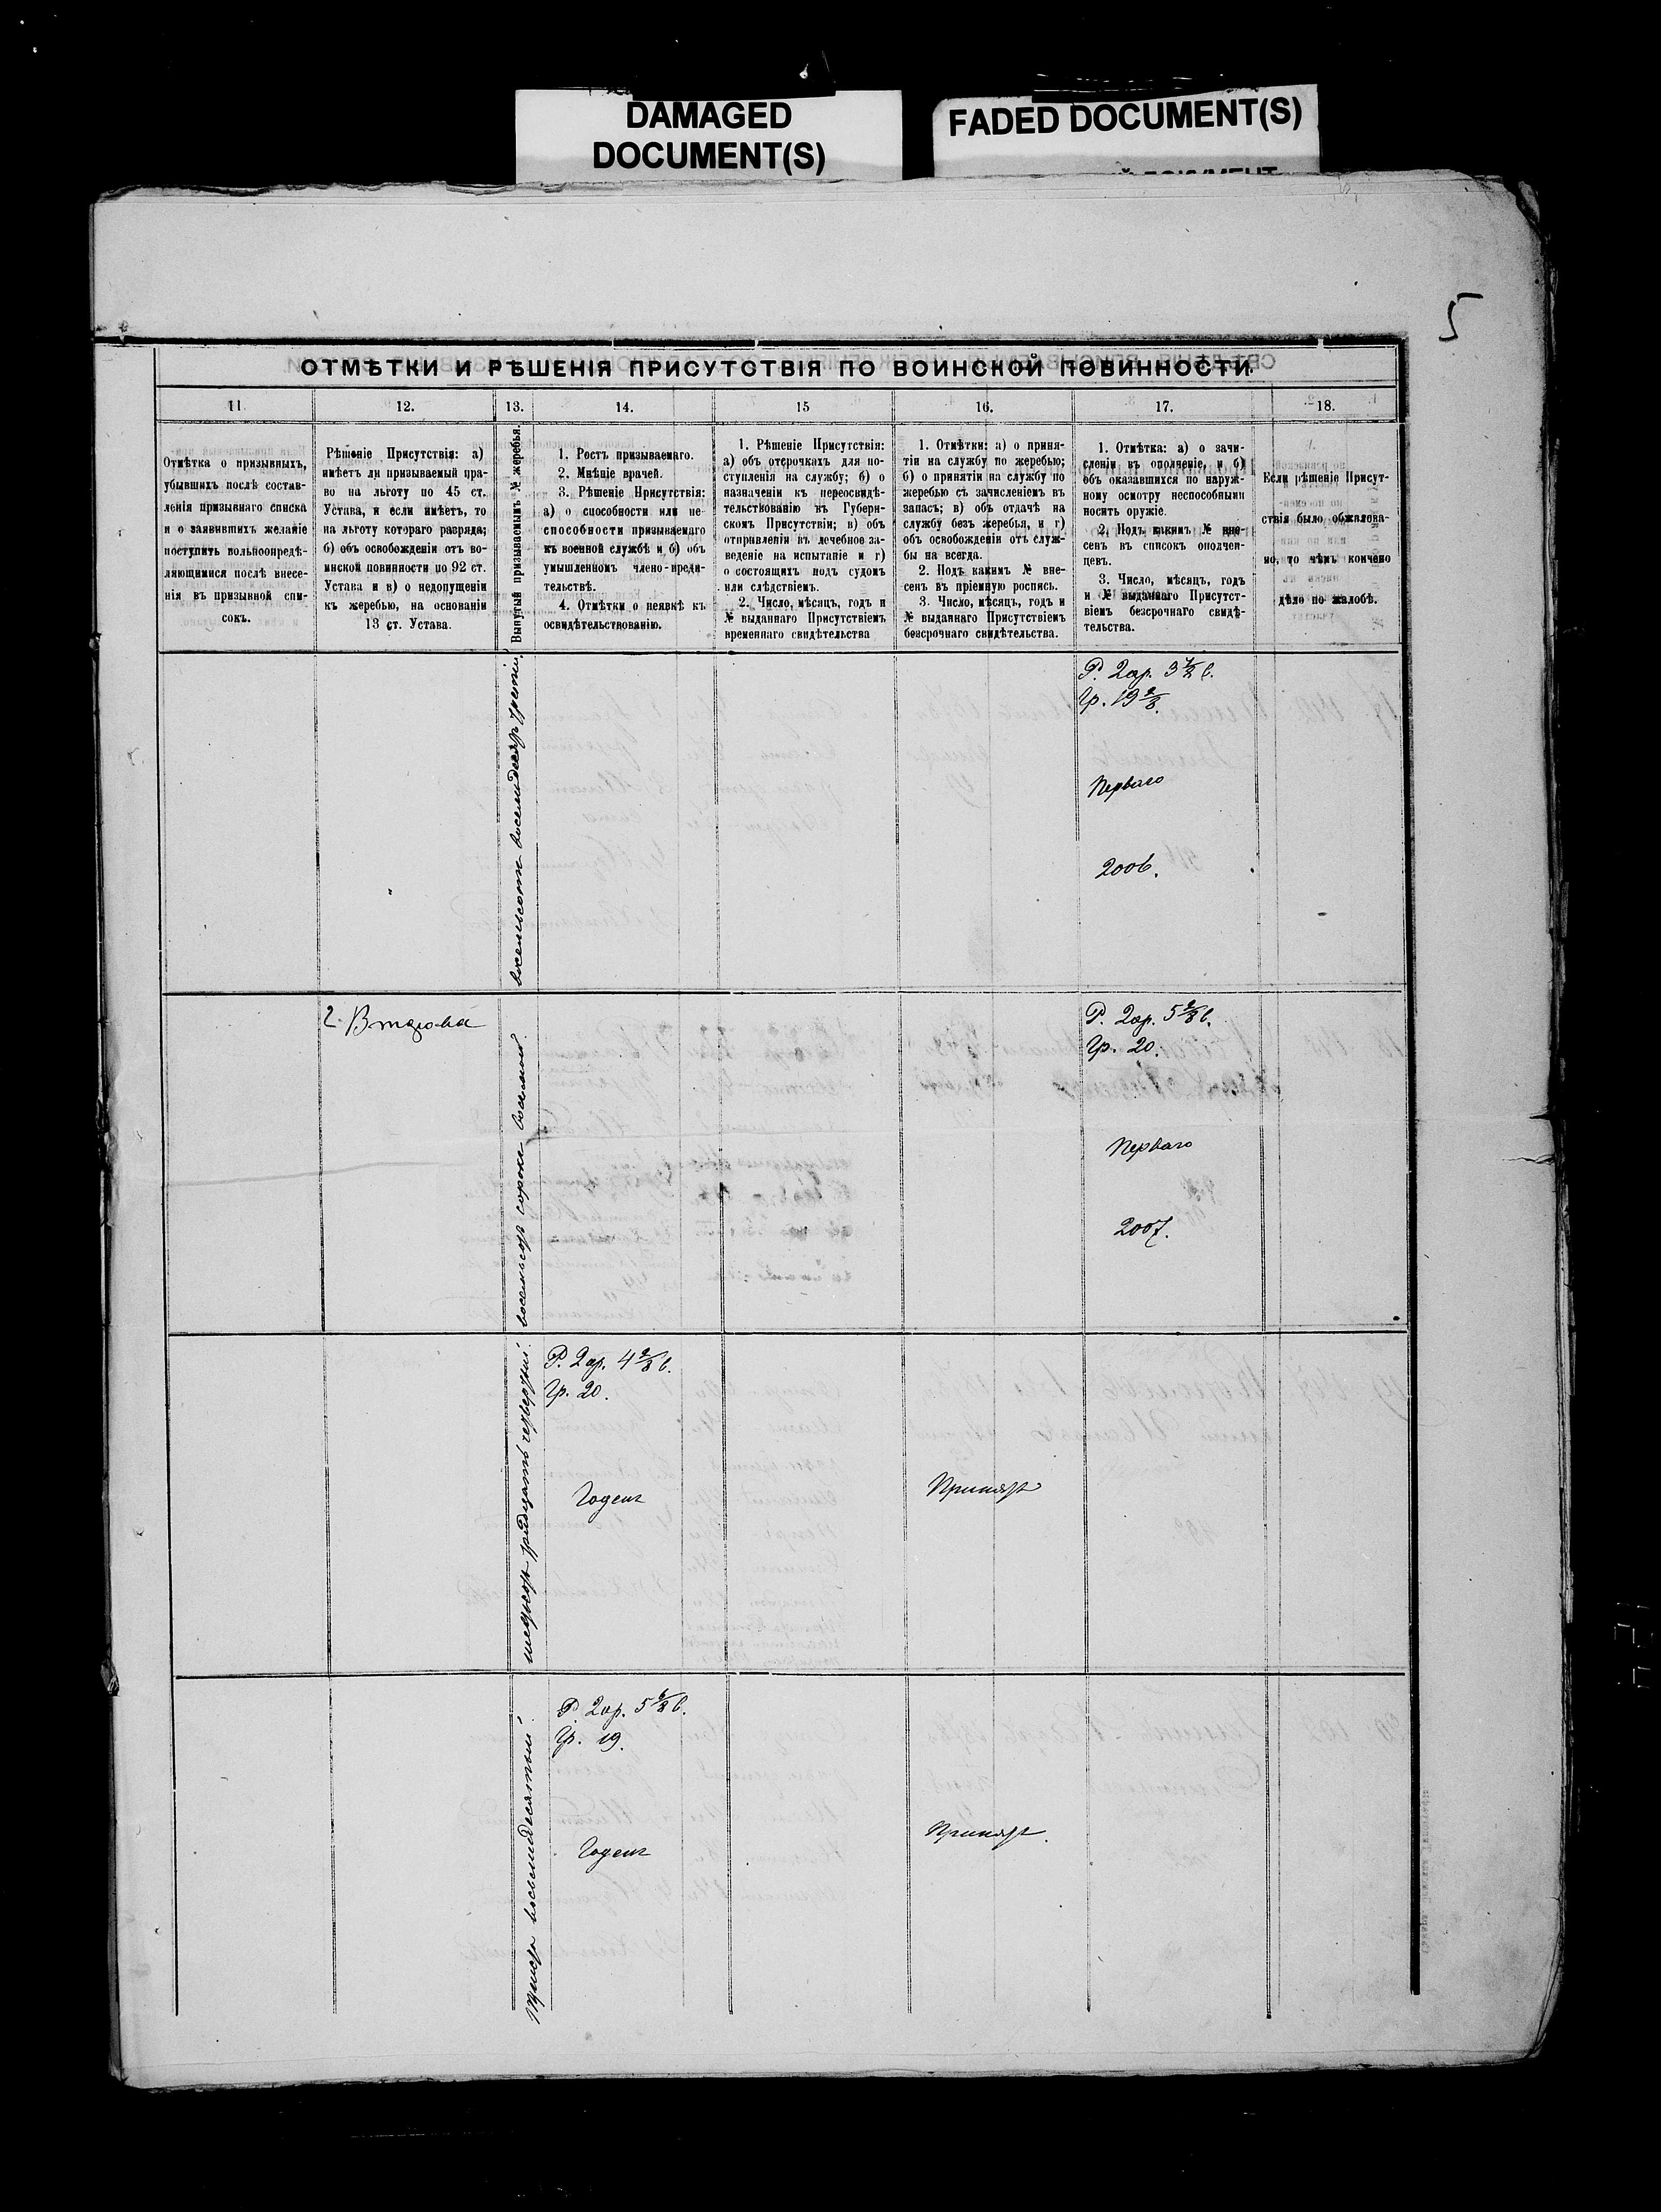 DAMAGED
DOCUMENT(S)
FADED DOCUMENT(S)
5
ОТМѢТКИ И РѢШЕНІЯ ПРИСУТСТВІЯ ПО ВОИНСКОЙ ПОВИННОСТИ.
11
12.
13.
14.
15
16.
17.
18.
Отмѣтка о призывныхъ,
убывшихъ послѣ состав-
ленія призывнаго списка
и о заявившихъ желаніе
поступить вольноопредѣ-
ляющимися послѣ внесе-
нія въ призывной спи-
сокъ.
Рѣшеніе Присутствія: а)
имѣетъ ли призываемый пра-
во на льготу по 45 ст.
Устава, и если имѣетъ, то
на льготу котораго разряда;
б) объ освобожденіи отъ во-
инской повинности по 92 ст.
Устава и в) о недопущеніи
къ жеребью, на основаніи
13 ст. Устава.
Вынутый призываемымъ № жеребья.
1. Ростъ призываемаго.
2. Мнѣніе врачей.
3. Рѣшеніе Присутствія:
а) о способности или не-
способности призываемаго
къ военной службѣ и б) объ
умышленномъ члено-вреди-
тельствѣ.
4. Отмѣтки о неявкѣ къ
освидѣтельствованію.
1. Рѣшеніе Присутствія:
а) объ отсрочкахъ для по-
ступленія на службу; б) о
назначеніи къ переосвидѣ-
тельствованію въ Губерн-
скомъ Присутствіи; в) объ
отправленіи въ лечебное за-
веденіе на испытаніе и г)
о состоящихъ подъ судомъ
или слѣдствіемъ.
2. Число, мѣсяцъ, годъ и
№ выданнаго Присутствіемъ
временнаго свидѣтельства
1. Отмѣтки: а) о приня-
тіи на службу по жеребью;
б) о принятіи на службу по
жеребью съ зачисленіемъ въ
запасъ; в) объ отдачѣ на
службу безъ жеребья, и г)
объ освобожденіи отъ служ-
бы на всегда.
2. Подъ какимъ № вне-
сенъ въ пріемную роспись.
3. Число, мѣсяцъ, годъ и
№ выданнаго Присутствіемъ
безсрочнаго свидѣтельства.
1. Отмѣтка: а) о зачи-
сленіи въ ополченіе, и б)
объ оказавшихся по наруж-
ному осмотру неспособными
носить оружіе.
2. Подъ какимъ № вне-
сенъ въ списокъ ополчен-
цевъ.
3. Число, мѣсяцъ, годъ
и № выданнаго Присутст-
віемъ безсрочнаго свидѣ-
тельства.
Если рѣшеніе Присут-
ствія было обжалова-
но, то чѣмъ кончено
дѣло по жалобѣ.
восемьсотъ восемьдесятъ третій.
Р. 2 ар. 3 в.
Гр. 19
Перваго
2006.
2. Втораго
восемьсотъ сорокъ восьмой.
Р. 2 ар. 5 в.
Гр. 20.
Перваго
2007.
шестьсотъ тридцать четвертый.
Р. 2 ар. 4 в.
Гр. 20.
Годенъ
Принятъ
триста восемьдесятый.
Р. 2 ар. 5 в.
Гр. 19.
Годенъ
Принятъ.